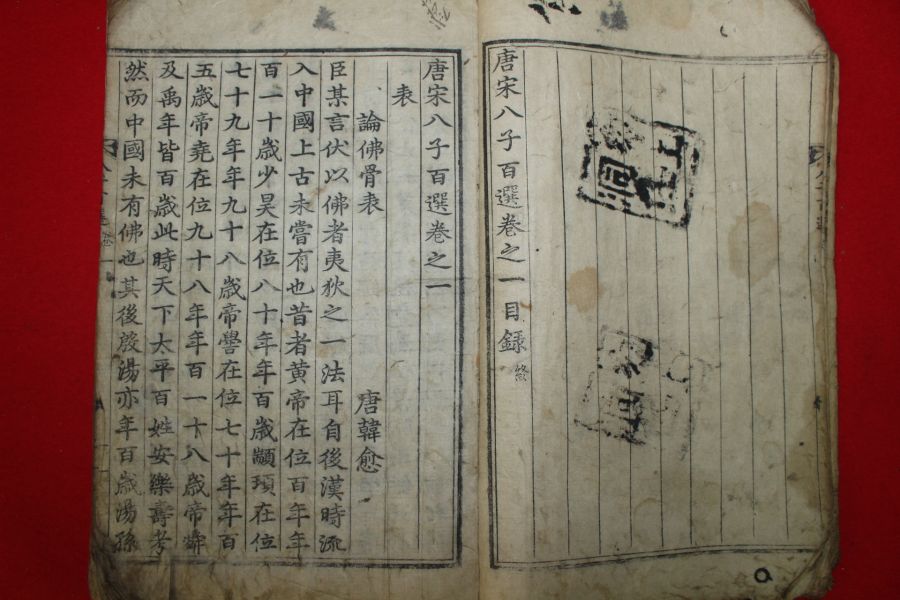 唐宋八子百選卷之一目録 終
唐宋八子百選卷之一
表
論佛骨表 唐韓愈
臣某言伏以佛者夷狄之一法耳自後漢時流
入中國上古未嘗有也昔者黃帝在位百年年
百一十歲少昊在位八十年年百歲顓頊在位
七十九年年九十八歲帝嚳在位七十年年百
五歲帝堯在位九十八年年百一十八歲帝舜
及禹年皆百歲此時天下太平百姓安樂壽考
然而中國未有佛也其後殷湯亦年百歲湯孫